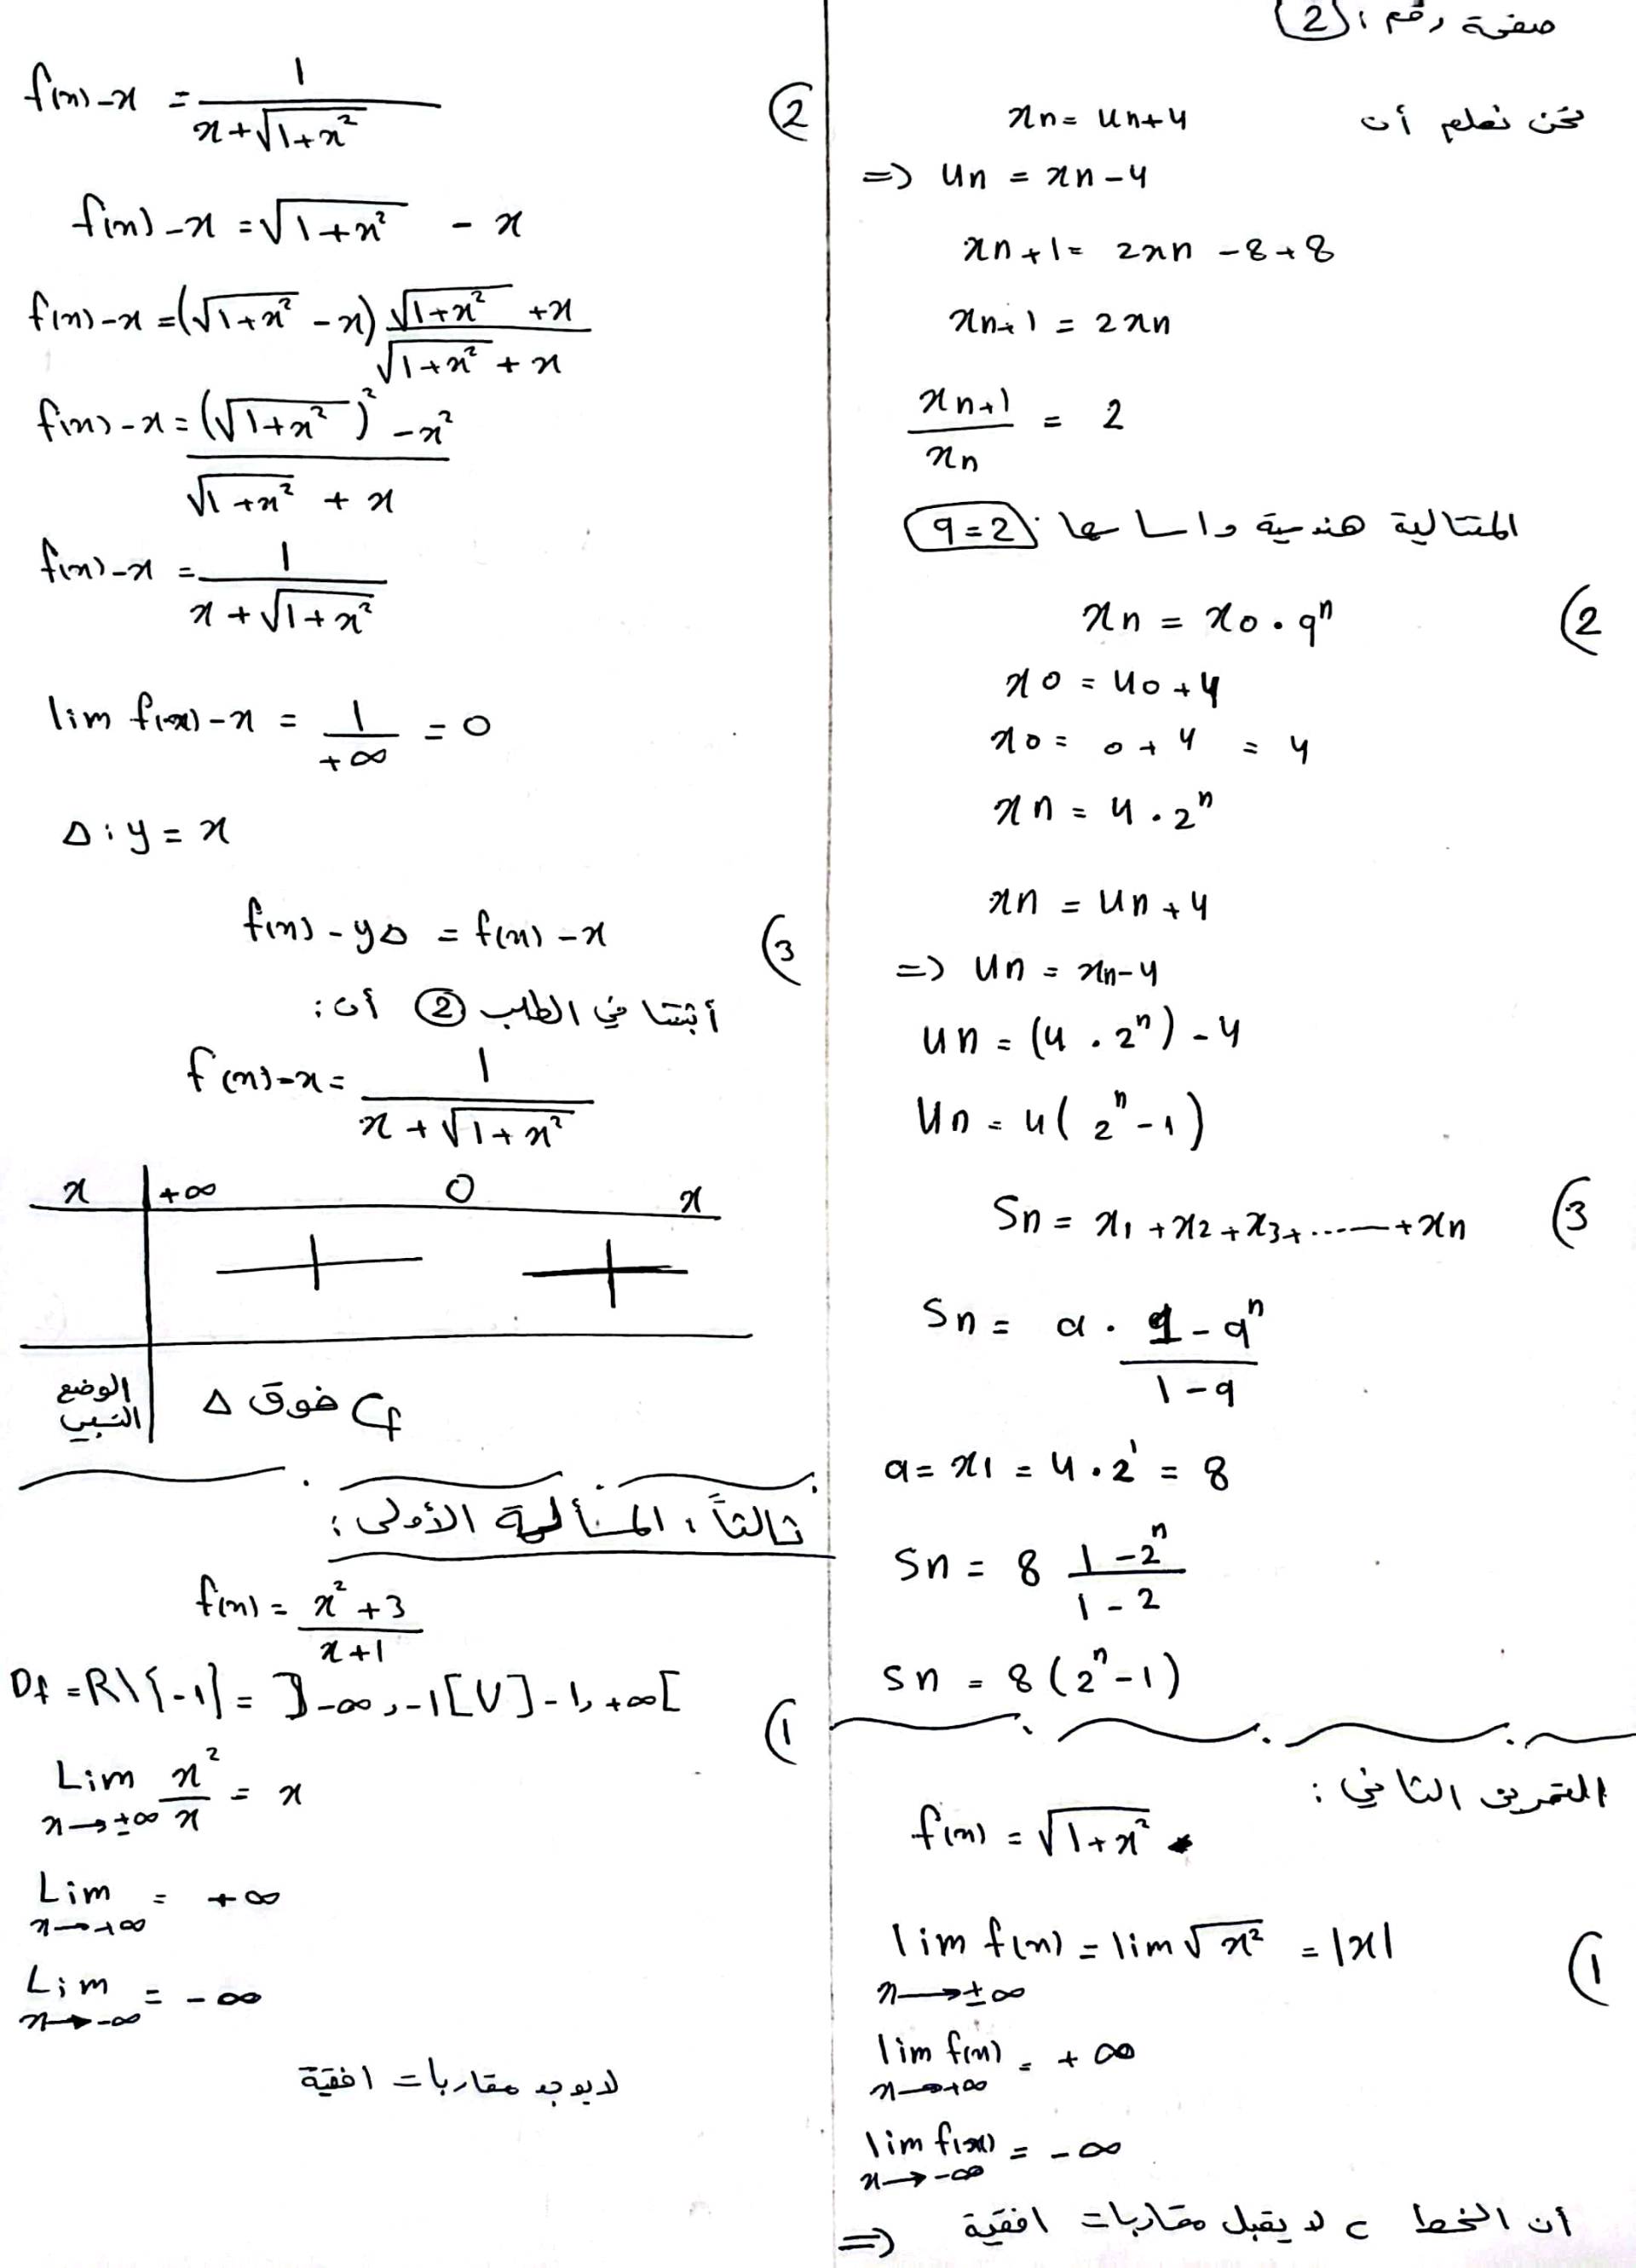 صفحة رقم: 2
نحن نعلم أن xn = un+4
=> un = xn-4
xn+1 = 2xn -8+8
xn+1 = 2xn
xn+1 / xn = 2
المتتالية هندسية واساسها: q=2
2) xn = x0 . q^n
x0 = u0+4
x0 = 0+4 = 4
xn = 4 . 2^n
xn = un+4
=> un = xn-4
un = (4 . 2^n) - 4
un = 4( 2^n - 1)
3) Sn = x1 + x2 + x3 + ...... + xn
Sn = a . 1 - q^n / 1 - q
a = x1 = 4 . 2^1 = 8
Sn = 8 1 - 2^n / 1 - 2
Sn = 8 (2^n - 1)
التمرين الثاني:
f(x) = √1+x²
1) lim f(x) = lim √x² = |x|
x→±∞
lim f(x) = +∞
x→+∞
lim f(x) = -∞
x→-∞
أن الخط C لا يقبل مقاربات افقية <=
2) f(x)-x = 1 / x+√1+x²
f(x)-x = √1+x² - x
f(x)-x = (√1+x² - x) √1+x² + x / √1+x² + x
f(x)-x = (√1+x²)² - x² / √1+x² + x
f(x)-x = 1 / x+√1+x²
lim f(x)-x = 1 / +∞ = 0
Δ: y = x
3) f(x) - yΔ = f(x) - x
أثبتنا في الطلب 2 أن:
f(x)-x = 1 / x+√1+x²
x +∞ 0 x
+ +
الوضع النسبي Cf فوق Δ
ثالثاً: المسألة الأولى:
f(x) = x²+3 / x+1
1) Df = R\{-1} = ]-∞, -1[ U ]-1, +∞[
Lim x² / x = x
x→±∞
Lim = +∞
x→+∞
Lim = -∞
x→-∞
لا يوجد مقاربات افقية